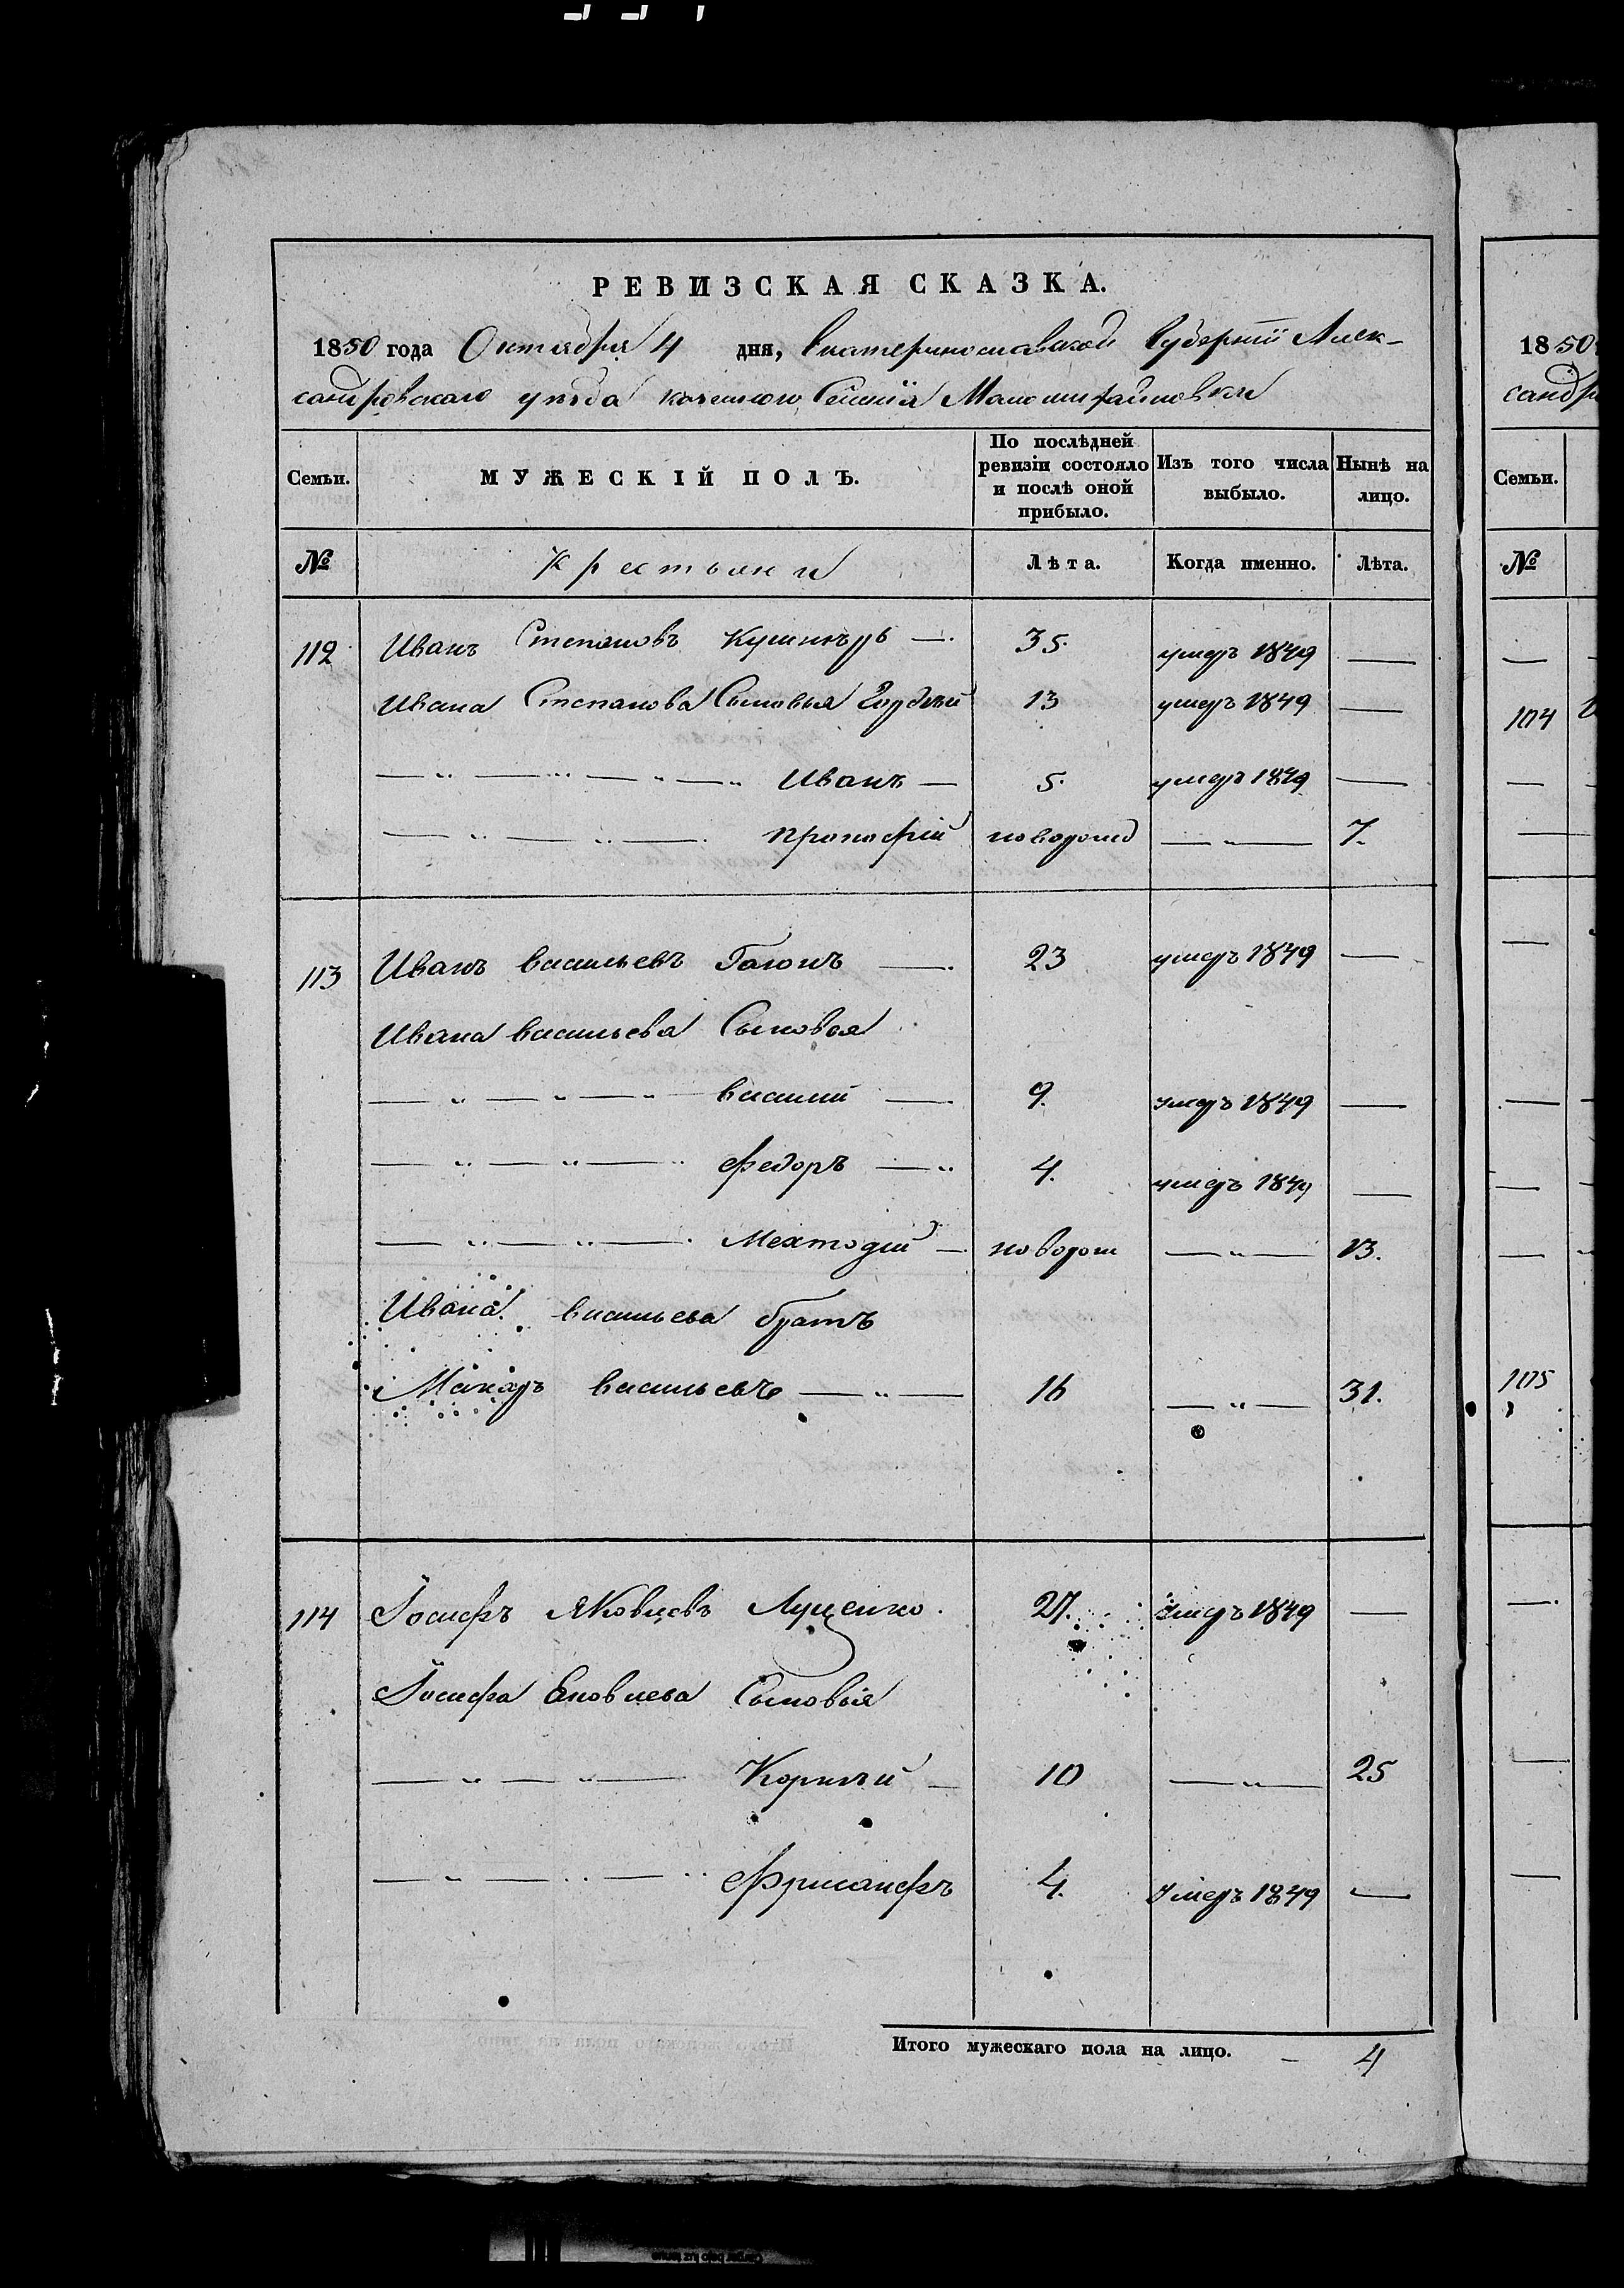 РЕВИЗСКАЯ СКАЗКА.
1850 года Октября 4 дня, Екатеринославской Губерніи Алек-
сандровскаго уѣзда казеннаго Селенія Маломихайловки
Семьи. МУЖЕСКІЙ ПОЛЪ. По послѣдней ревизіи состояло и послѣ оной прибыло. Изъ того числа выбыло. Нынѣ на лицо.
№ Крестьяни Лѣта. Когда именно. Лѣта.
112 Иванъ Степановъ —. 35. умеръ 1849 —
Ивана Степанова Сыновья Гордѣй 13 умеръ 1849 —
— „ — „ — „ — „ Иванъ — 5. умеръ 1849 —
— „ — „ — Прокофій новорожд — „ — 7.
113 Иванъ Васильевъ —. 23 умеръ 1849 —
Ивана Васильева Сыновья
— „ — „ — „ — Василий —. 9. умеръ 1849 —
— „ — „ — „ Федоръ — „ 4. умеръ 1849 —
— „ — „ — Мехтодій — новорож — „ — 13.
Ивана Васильева братъ
Макаръ Васильевъ — „ — 16 — „ — 31.
114 Іосифъ Яковлевъ Луценко. 27. Умеръ 1849 —
Іосифа Яковлева Сыновья
— „ — „ — Корнѣй — 10 — „ — 25
— „ — „ — „ 4. Умеръ 1849 —
Итого мужескаго пола на лицо. — 4
1850
Семьи.
№
104
105